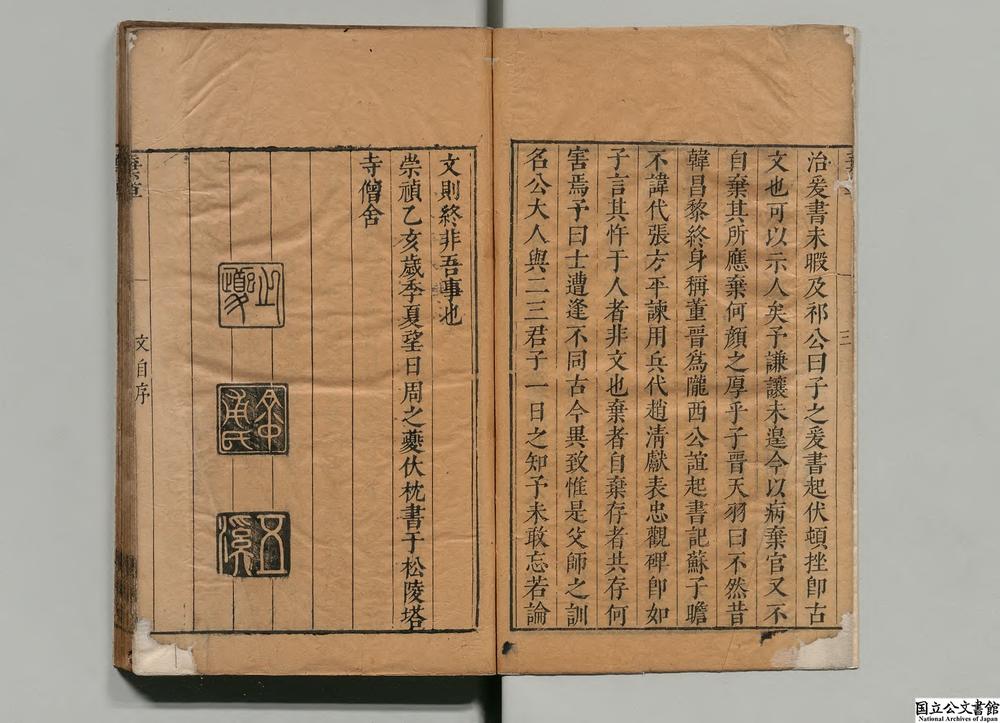 治爰書未暇及祁公曰子之爰書起伏頓挫卽古
文也可以示人矣予謙讓未遑今以病棄官又不
自棄其所應棄何顔之厚乎子晉天羽曰不然昔
韓昌黎終身稱董晉爲隴西公誼起書記蘇子瞻
不諱代張方平諫用兵代趙淸獻表忠觀碑卽如
子言其忤于人者非文也棄者自棄存者其存何
害焉予曰士遭逢不同古今異致惟是父師之訓
名公大人與二三君子一日之知予未敢忘若論
三
文則終非吾事也
崇禎乙亥歲季夏望日周之夔伏枕書于松陵塔
寺僧舍
之夔
五溪
文自序
国立公文書館
National Archives of Japan